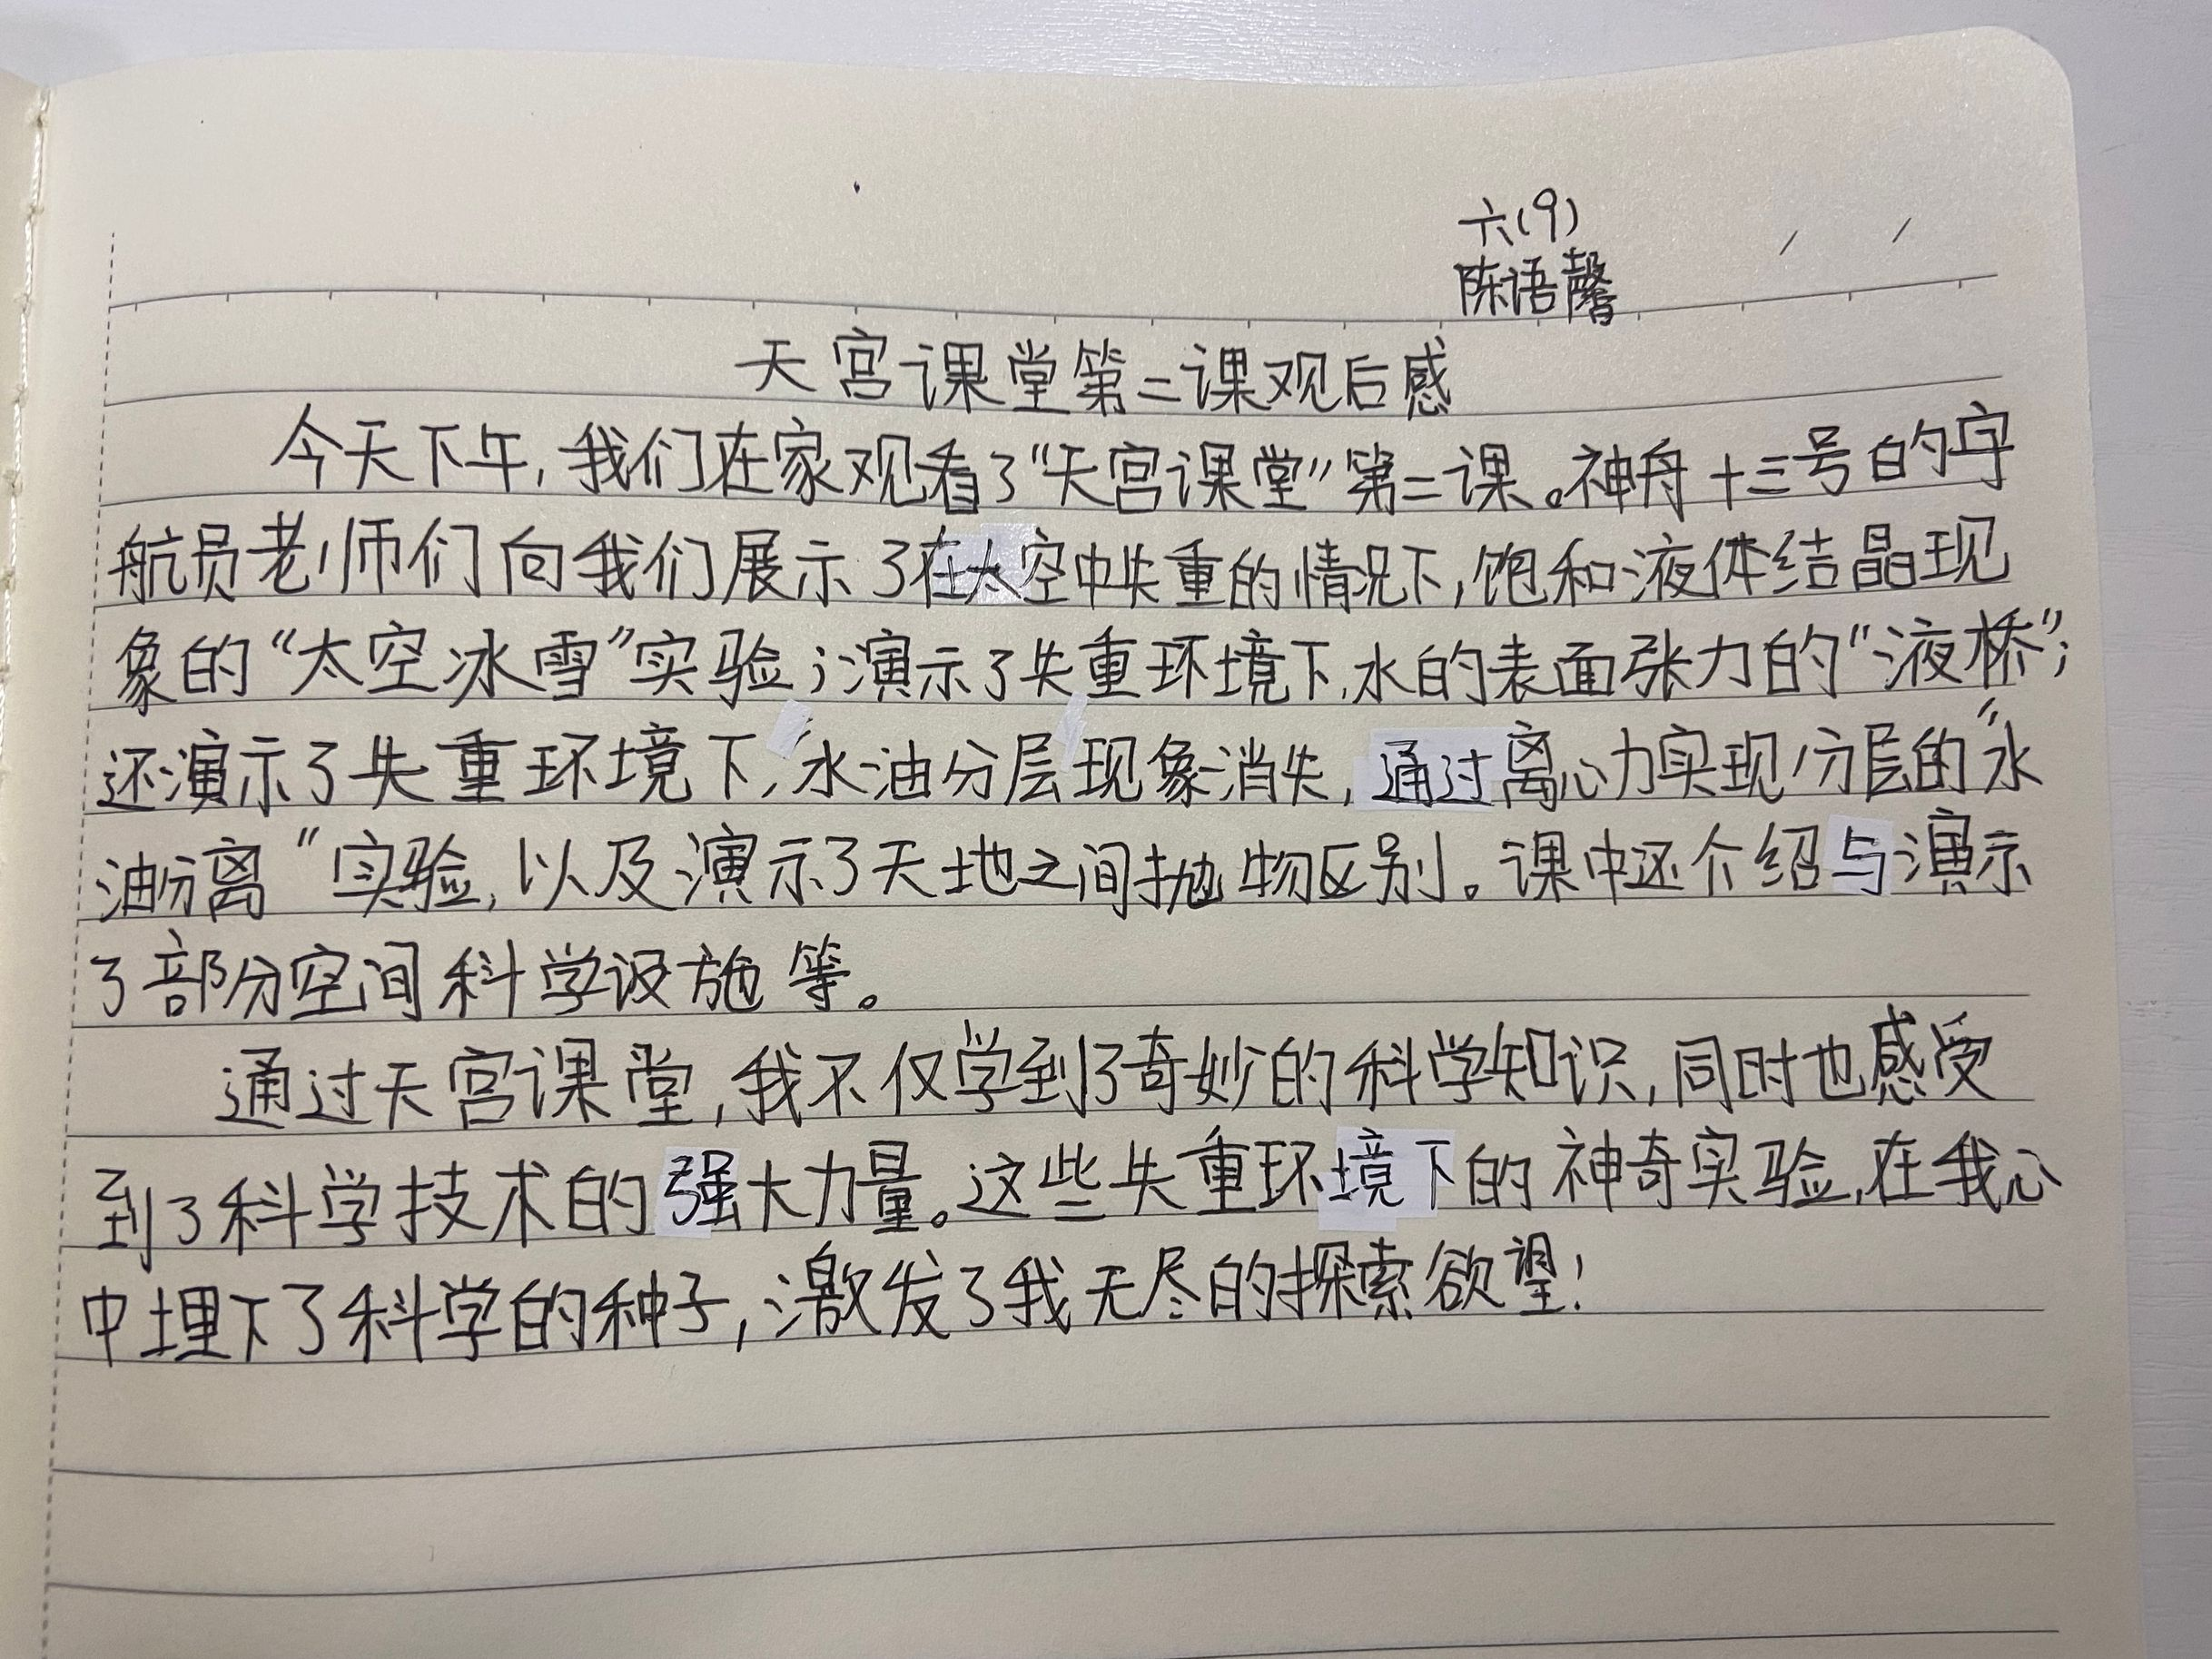 六(9)
陈语馨
天宫课堂第二课观后感
今天下午,我们在家观看了“天宫课堂”第二课。神舟十三号的宇
航员老师们向我们展示了在太空中失重的情况下,饱和液体结晶现
象的“太空冰雪”实验;演示了失重环境下,水的表面张力的“液桥”;
还演示了失重环境下,水油分层现象消失,通过离心力实现分层的“水
油分离”实验,以及演示了天地之间抛物区别。课中还介绍与演示
了部分空间科学设施等。
通过天宫课堂,我不仅学到了奇妙的科学知识,同时也感受
到了科学技术的强大力量。这些失重环境下的神奇实验,在我心
中埋下了科学的种子,激发了我无尽的探索欲望!